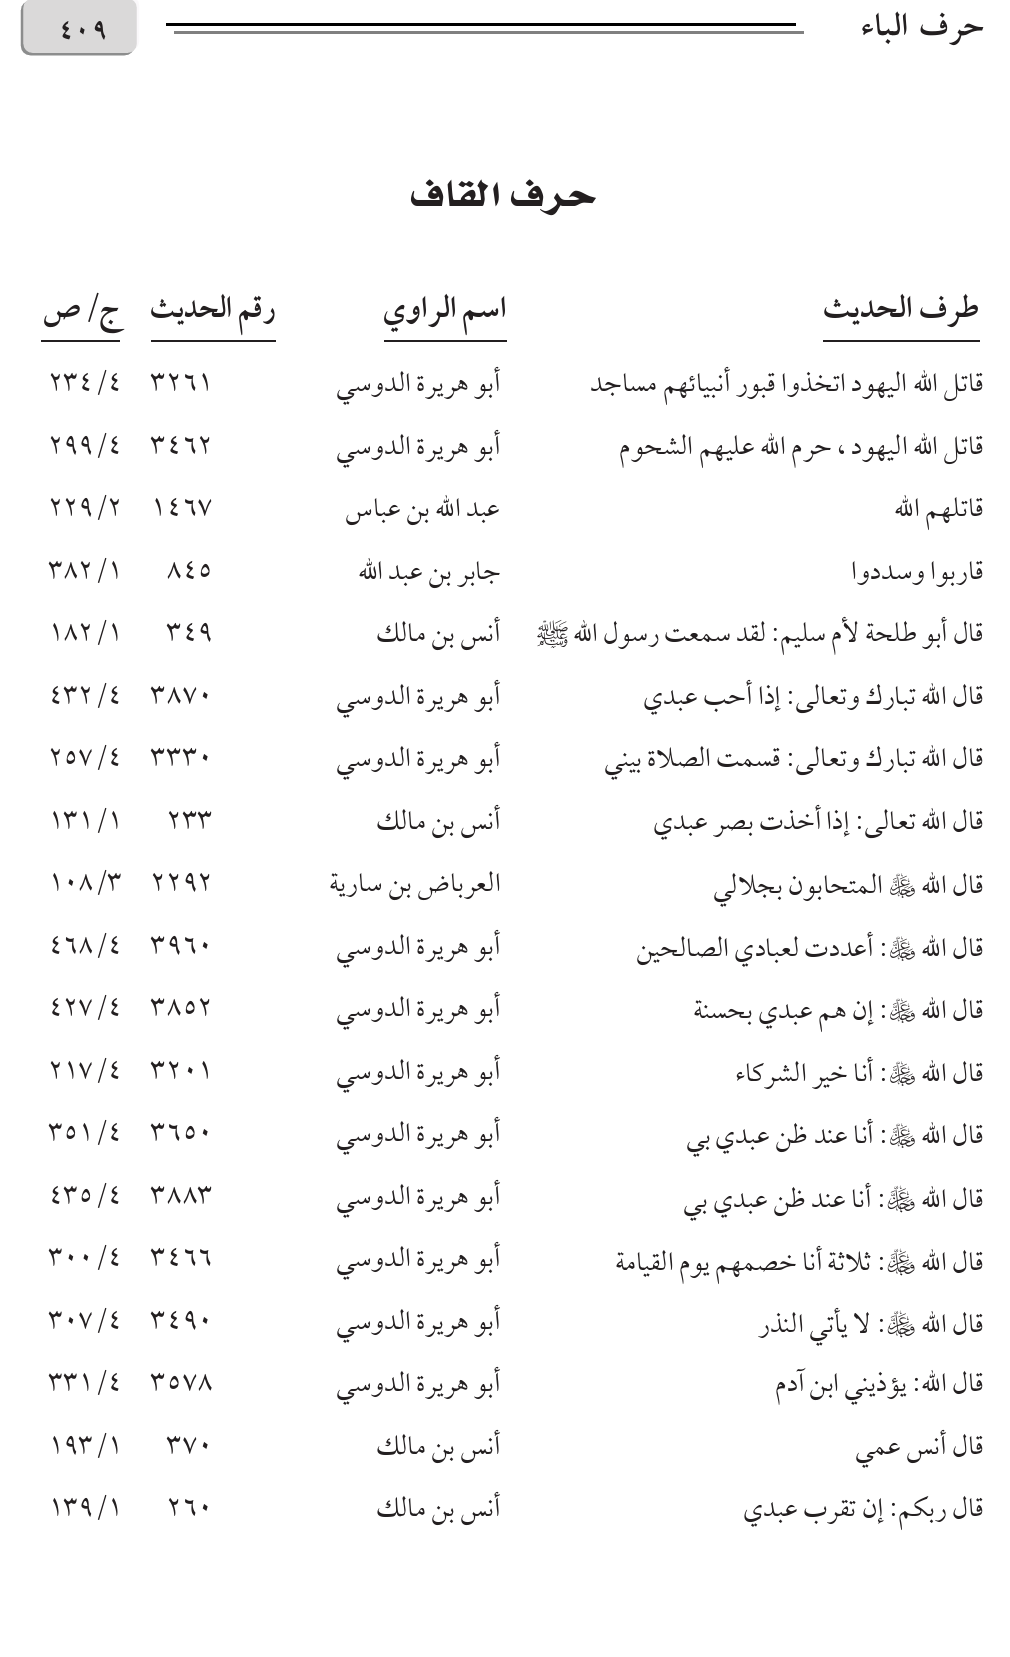 حرف الباء ٤٠٩
حرف القاف
طرف الحديث اسم الراوي رقم الحديث ج/ ص
قاتل الله اليهود اتخذوا قبور أنبيائهم مساجد أبو هريرة الدوسي ٣٢٦١ ٤/ ٢٣٤
قاتل الله اليهود ، حرم الله عليهم الشحوم أبو هريرة الدوسي ٣٤٦٢ ٤/ ٢٩٩
قاتلهم الله عبد الله بن عباس ١٤٦٧ ٢/ ٢٢٩
قاربوا وسددوا جابر بن عبد الله ٨٤٥ ١/ ٣٨٢
قال أبو طلحة لأم سليم: لقد سمعت رسول الله ﷺ أنس بن مالك ٣٤٩ ١/ ١٨٢
قال الله تبارك وتعالى: إذا أحب عبدي أبو هريرة الدوسي ٣٨٧٠ ٤/ ٤٣٢
قال الله تبارك وتعالى: قسمت الصلاة بيني أبو هريرة الدوسي ٣٣٣٠ ٤/ ٢٥٧
قال الله تعالى: إذا أخذت بصر عبدي أنس بن مالك ٢٣٣ ١/ ١٣١
قال الله عز وجل المتحابون بجلالي العرباض بن سارية ٢٢٩٢ ٣/ ١٠٨
قال الله عز وجل: أعددت لعبادي الصالحين أبو هريرة الدوسي ٣٩٦٠ ٤/ ٤٦٨
قال الله عز وجل: إن هم عبدي بحسنة أبو هريرة الدوسي ٣٨٥٢ ٤/ ٤٢٧
قال الله عز وجل: أنا خير الشركاء أبو هريرة الدوسي ٣٢٠١ ٤/ ٢١٧
قال الله عز وجل: أنا عند ظن عبدي بي أبو هريرة الدوسي ٣٦٥٠ ٤/ ٣٥١
قال الله عز وجل: أنا عند ظن عبدي بي أبو هريرة الدوسي ٣٨٨٣ ٤/ ٤٣٥
قال الله عز وجل: ثلاثة أنا خصمهم يوم القيامة أبو هريرة الدوسي ٣٤٦٦ ٤/ ٣٠٠
قال الله عز وجل: لا يأتي النذر أبو هريرة الدوسي ٣٤٩٠ ٤/ ٣٠٧
قال الله: يؤذيني ابن آدم أبو هريرة الدوسي ٣٥٧٨ ٤/ ٣٣١
قال أنس عمي أنس بن مالك ٣٧٠ ١/ ١٩٣
قال ربكم: إن تقرب عبدي أنس بن مالك ٢٦٠ ١/ ١٣٩